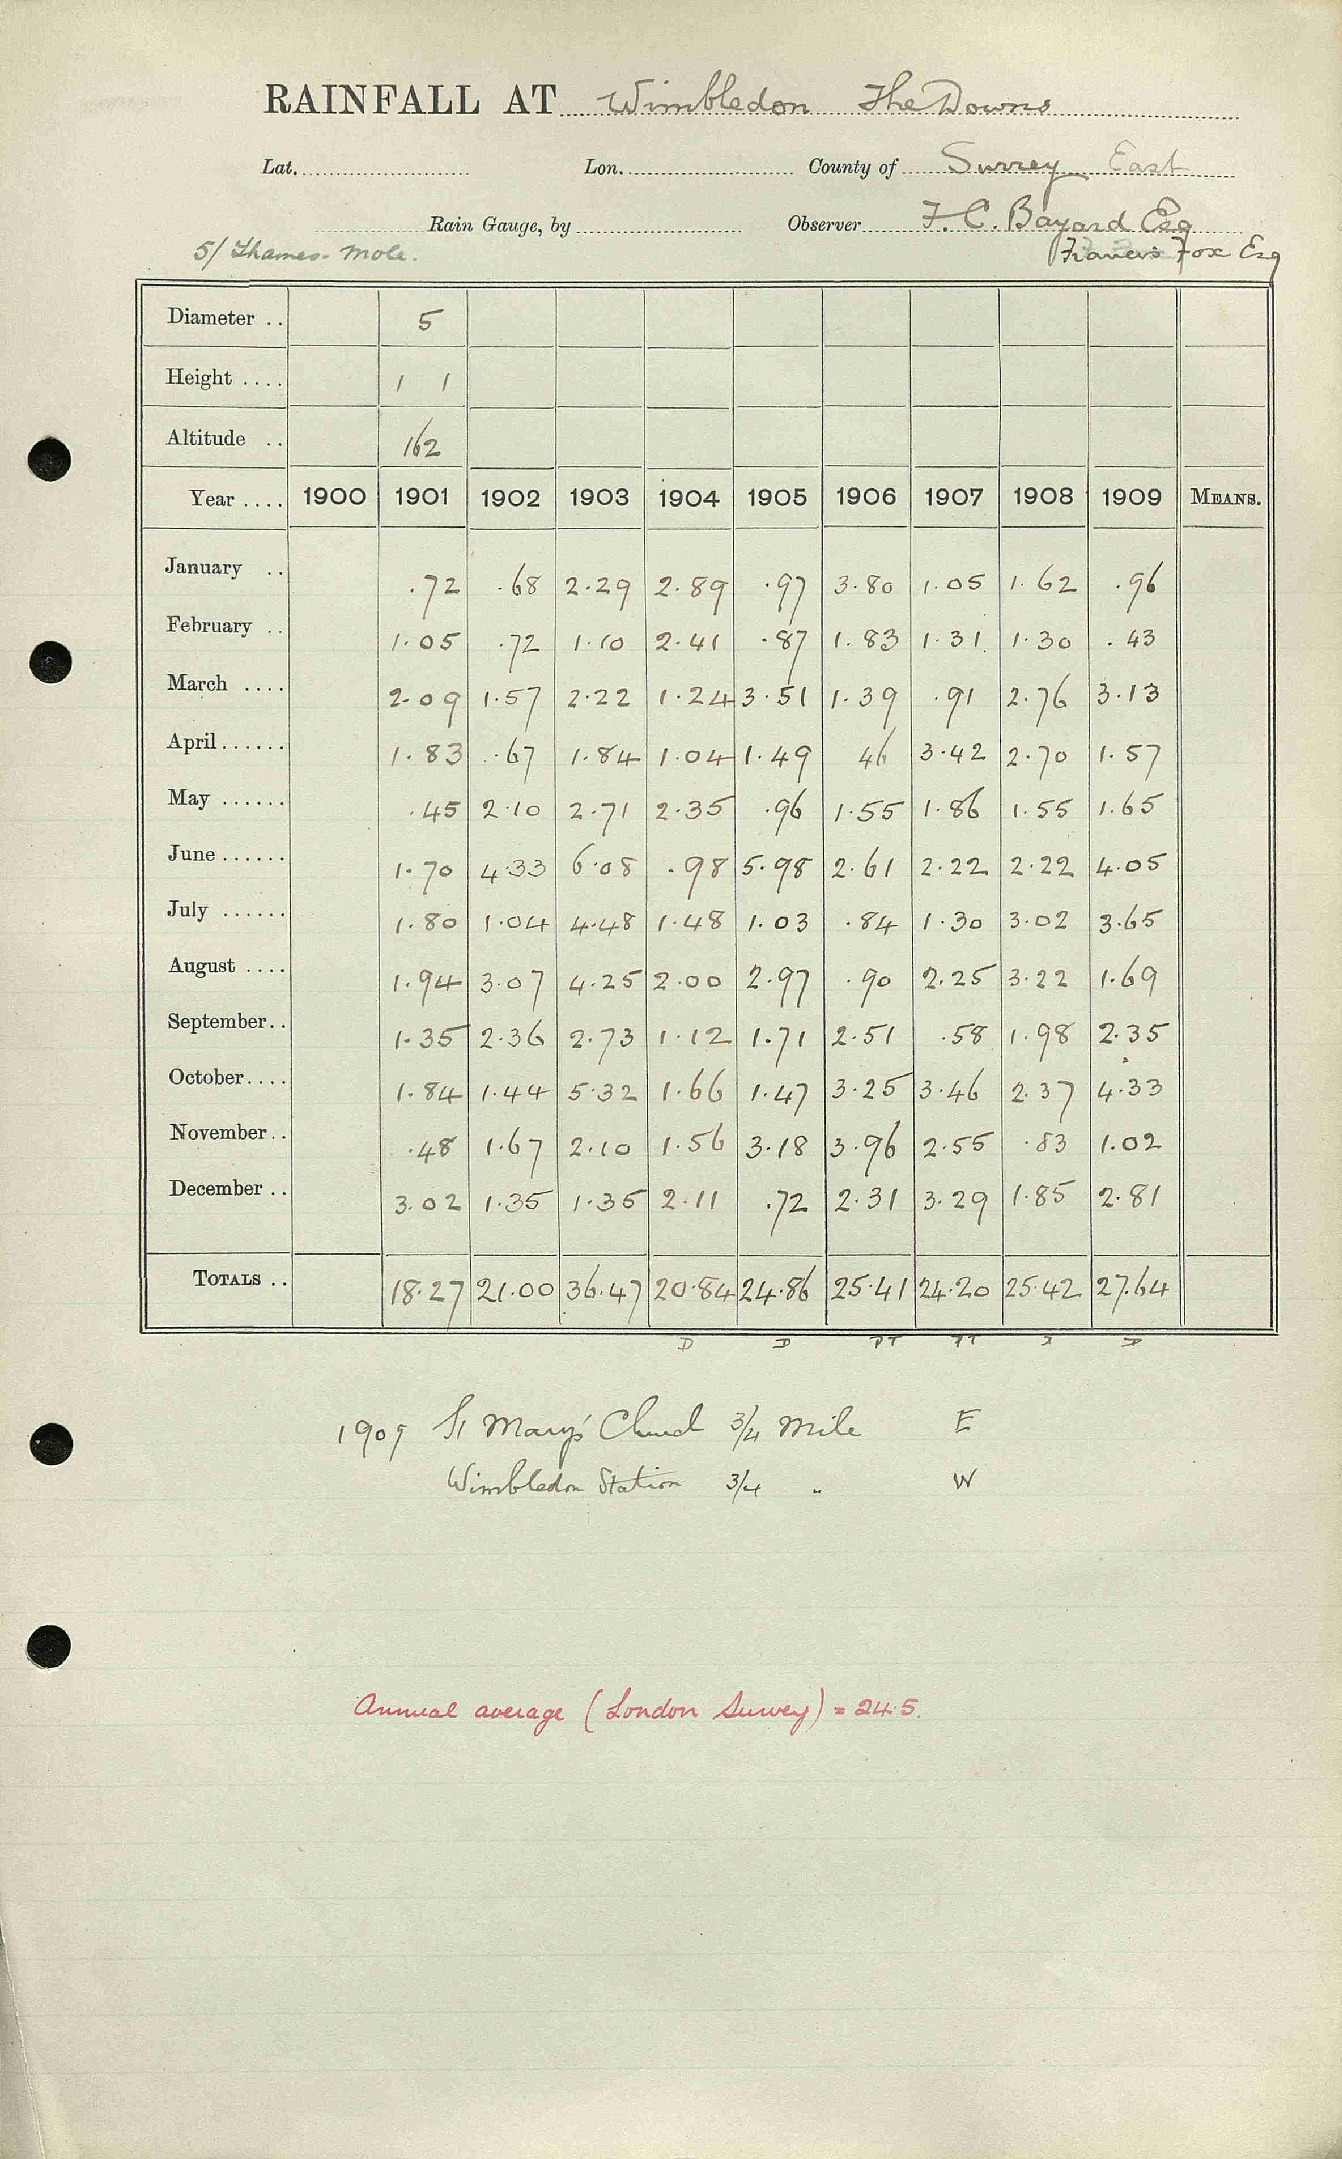 RAINFALL AT Wimbledon The Downs
Lat. Lon. County of Surrey East
Rain Gauge, by Observer F. C. Bayard Esq
5/ Thames-Mole. Francis Fox Esq
Diameter .. 5
Height .... 1 1
Altitude .. 162
Year .... 1900 1901 1902 1903 1904 1905 1906 1907 1908 1909 MEANS.
January .. .72 .68 2.29 2.89 .97 3.80 1.05 1.62 .96
February .. 1.05 .72 1.10 2.41 .87 1.83 1.31 1.30 .43
March .... 2.09 1.57 2.22 1.24 3.51 1.39 .91 2.76 3.13
April ...... 1.83 .67 1.84 1.04 1.49 46 3.42 2.70 1.57
May ...... .45 2.10 2.71 2.35 .96 1.55 1.86 1.55 1.65
June ...... 1.70 4.33 6.08 .98 5.98 2.61 2.22 2.22 4.05
July ...... 1.80 1.04 4.48 1.48 1.03 .84 1.30 3.02 3.65
August .... 1.94 3.07 4.25 2.00 2.97 .90 2.25 3.22 1.69
September .. 1.35 2.36 2.73 1.12 1.71 2.51 .58 1.98 2.35
October .... 1.84 1.44 5.32 1.66 1.47 3.25 3.46 2.37 4.33
November .. .48 1.67 2.10 1.56 3.18 3.96 2.55 .83 1.02
December .. 3.02 1.35 1.35 2.11 .72 2.31 3.29 1.85 2.81
TOTALS .. 18.27 21.00 36.47 20.84 24.86 25.41 24.20 25.42 27.64
D D PT PT
1909 St Mary's Church 3/4 Mile E
Wimbledon Station 3/4 " W
Annual average (London Survey) = 24.5.